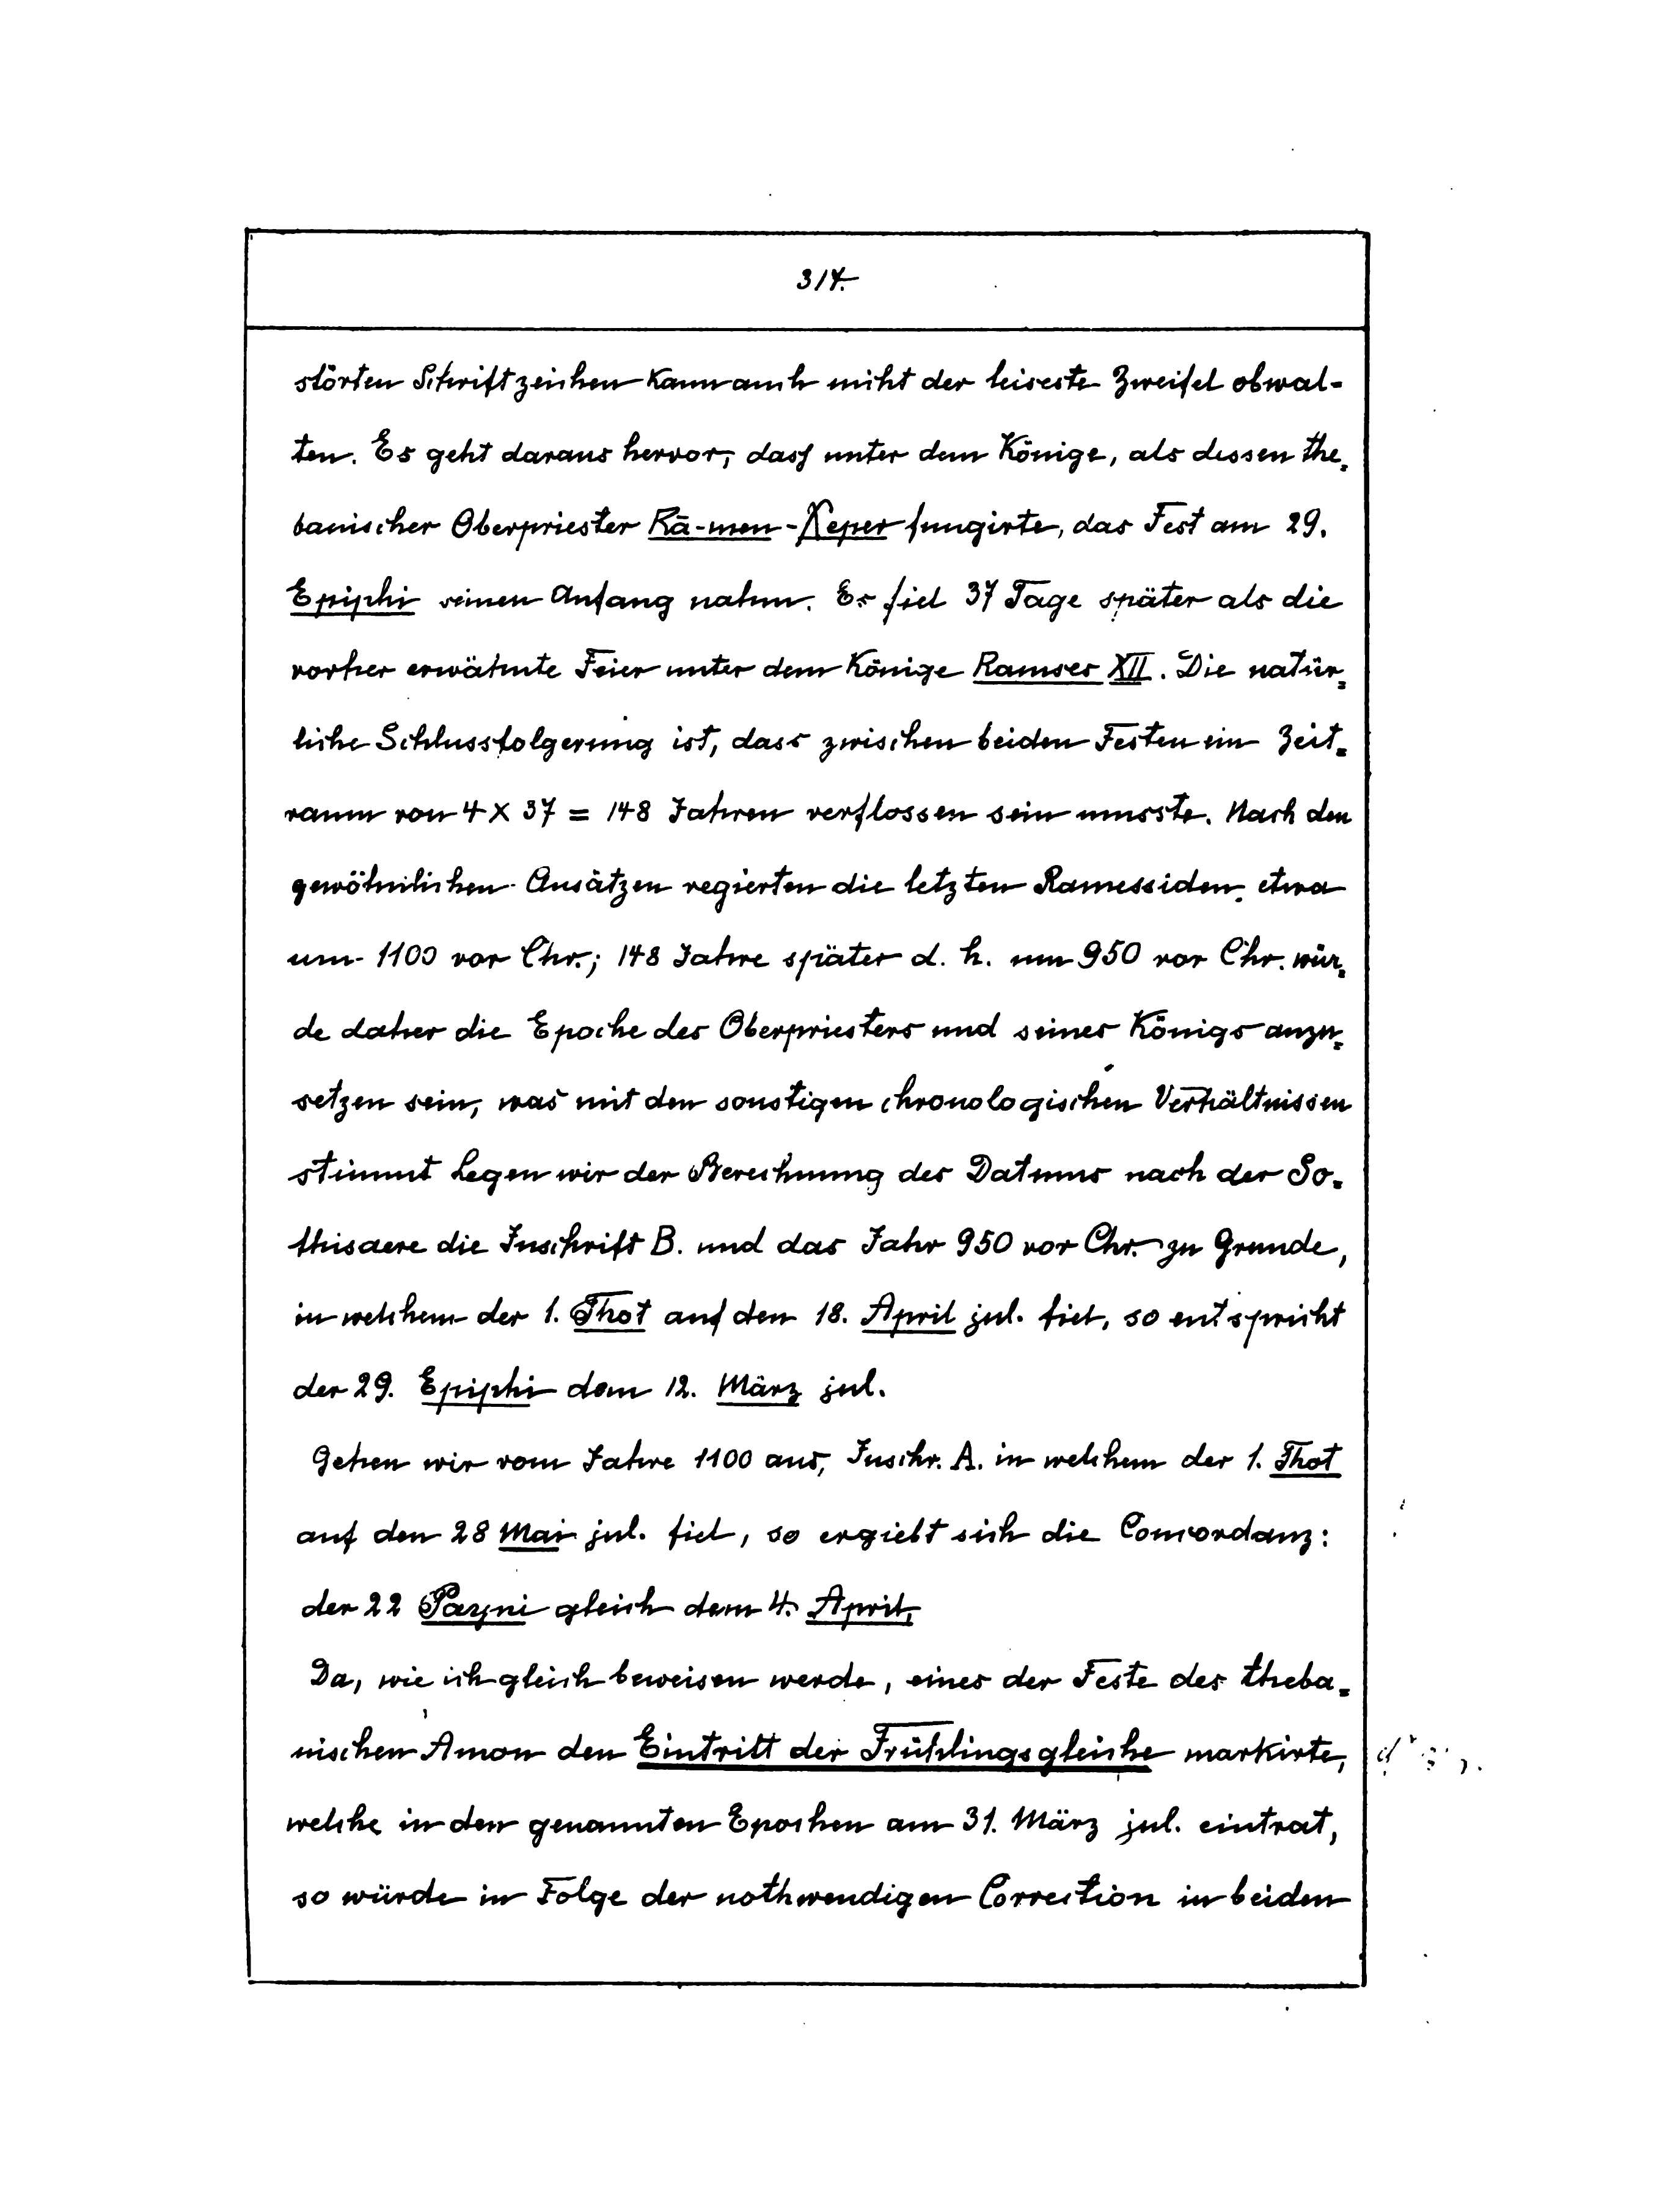 317.
störten Schriftzeichen kann auch nicht der leiseste Zweifel obwal-
ten. Es geht daraus hervor, dass unter dem Könige, als dessen the-
banischer Oberpriester Rā-men-Xeper fungirte, das Fest am 29.
Epiphi seinen Anfang nahm. Es fiel 37 Tage später als die
vorher erwähnte Feier unter dem Könige Ramses XII. Die natür-
liche Schlussfolgerung ist, dass zwischen beiden Festen ein Zeit-
raum von 4 X 37 = 148 Jahren verflossen sein musste. Nach den
gewöhnlichen Ansätzen regierten die letzten Ramessiden etwa
um 1100 vor Chr.; 148 Jahre später d. h. um 950 vor Chr. wür-
de daher die Epoche des Oberpriesters und seines Königs anzu-
setzen sein, was mit den sonstigen chronologischen Verhältnissen
stimmt Legen wir der Berechnung des Datums nach der So-
thisaere die Inschrift B. und das Jahr 950 vor Chr. zu Grunde,
in welchem der 1. Thot auf den 18. April jul. fiel, so entspricht
der 29. Epiphi dem 12. März jul.
Gehen wir vom Jahre 1100 aus, Inschr. A. in welchem der 1. Thot
auf den 28 Mai jul. fiel, so ergiebt sich die Concordanz:
der 22 Payni gleich dem 4. April.
Da, wie ich gleich beweisen werde, eines der Feste des theba-
nischen Amon den Eintritt der Frühlingsgleiche markirte,
welche in den genannten Epochen am 31. März jul. eintrat,
so würde in Folge der nothwendigen Correction in beiden